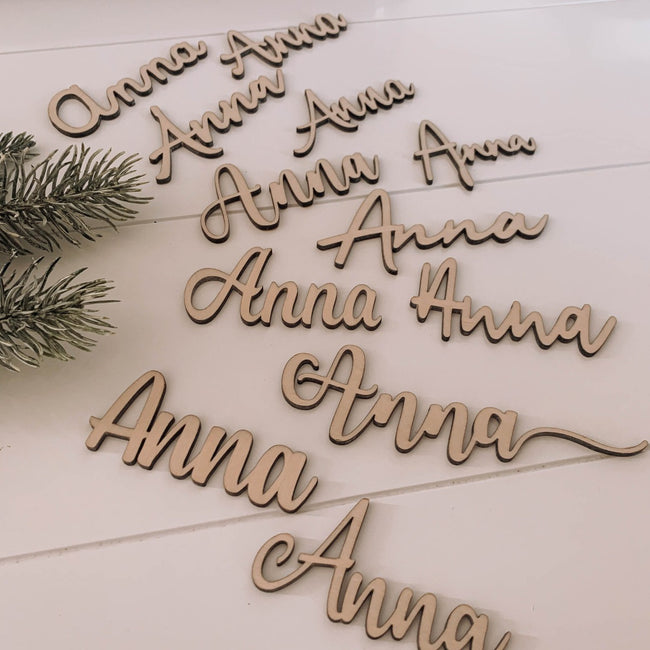 Anna
Anna
Anna
Anna
Anna
Anna
Anna
Anna
Anna
Anna
Anna
Anna